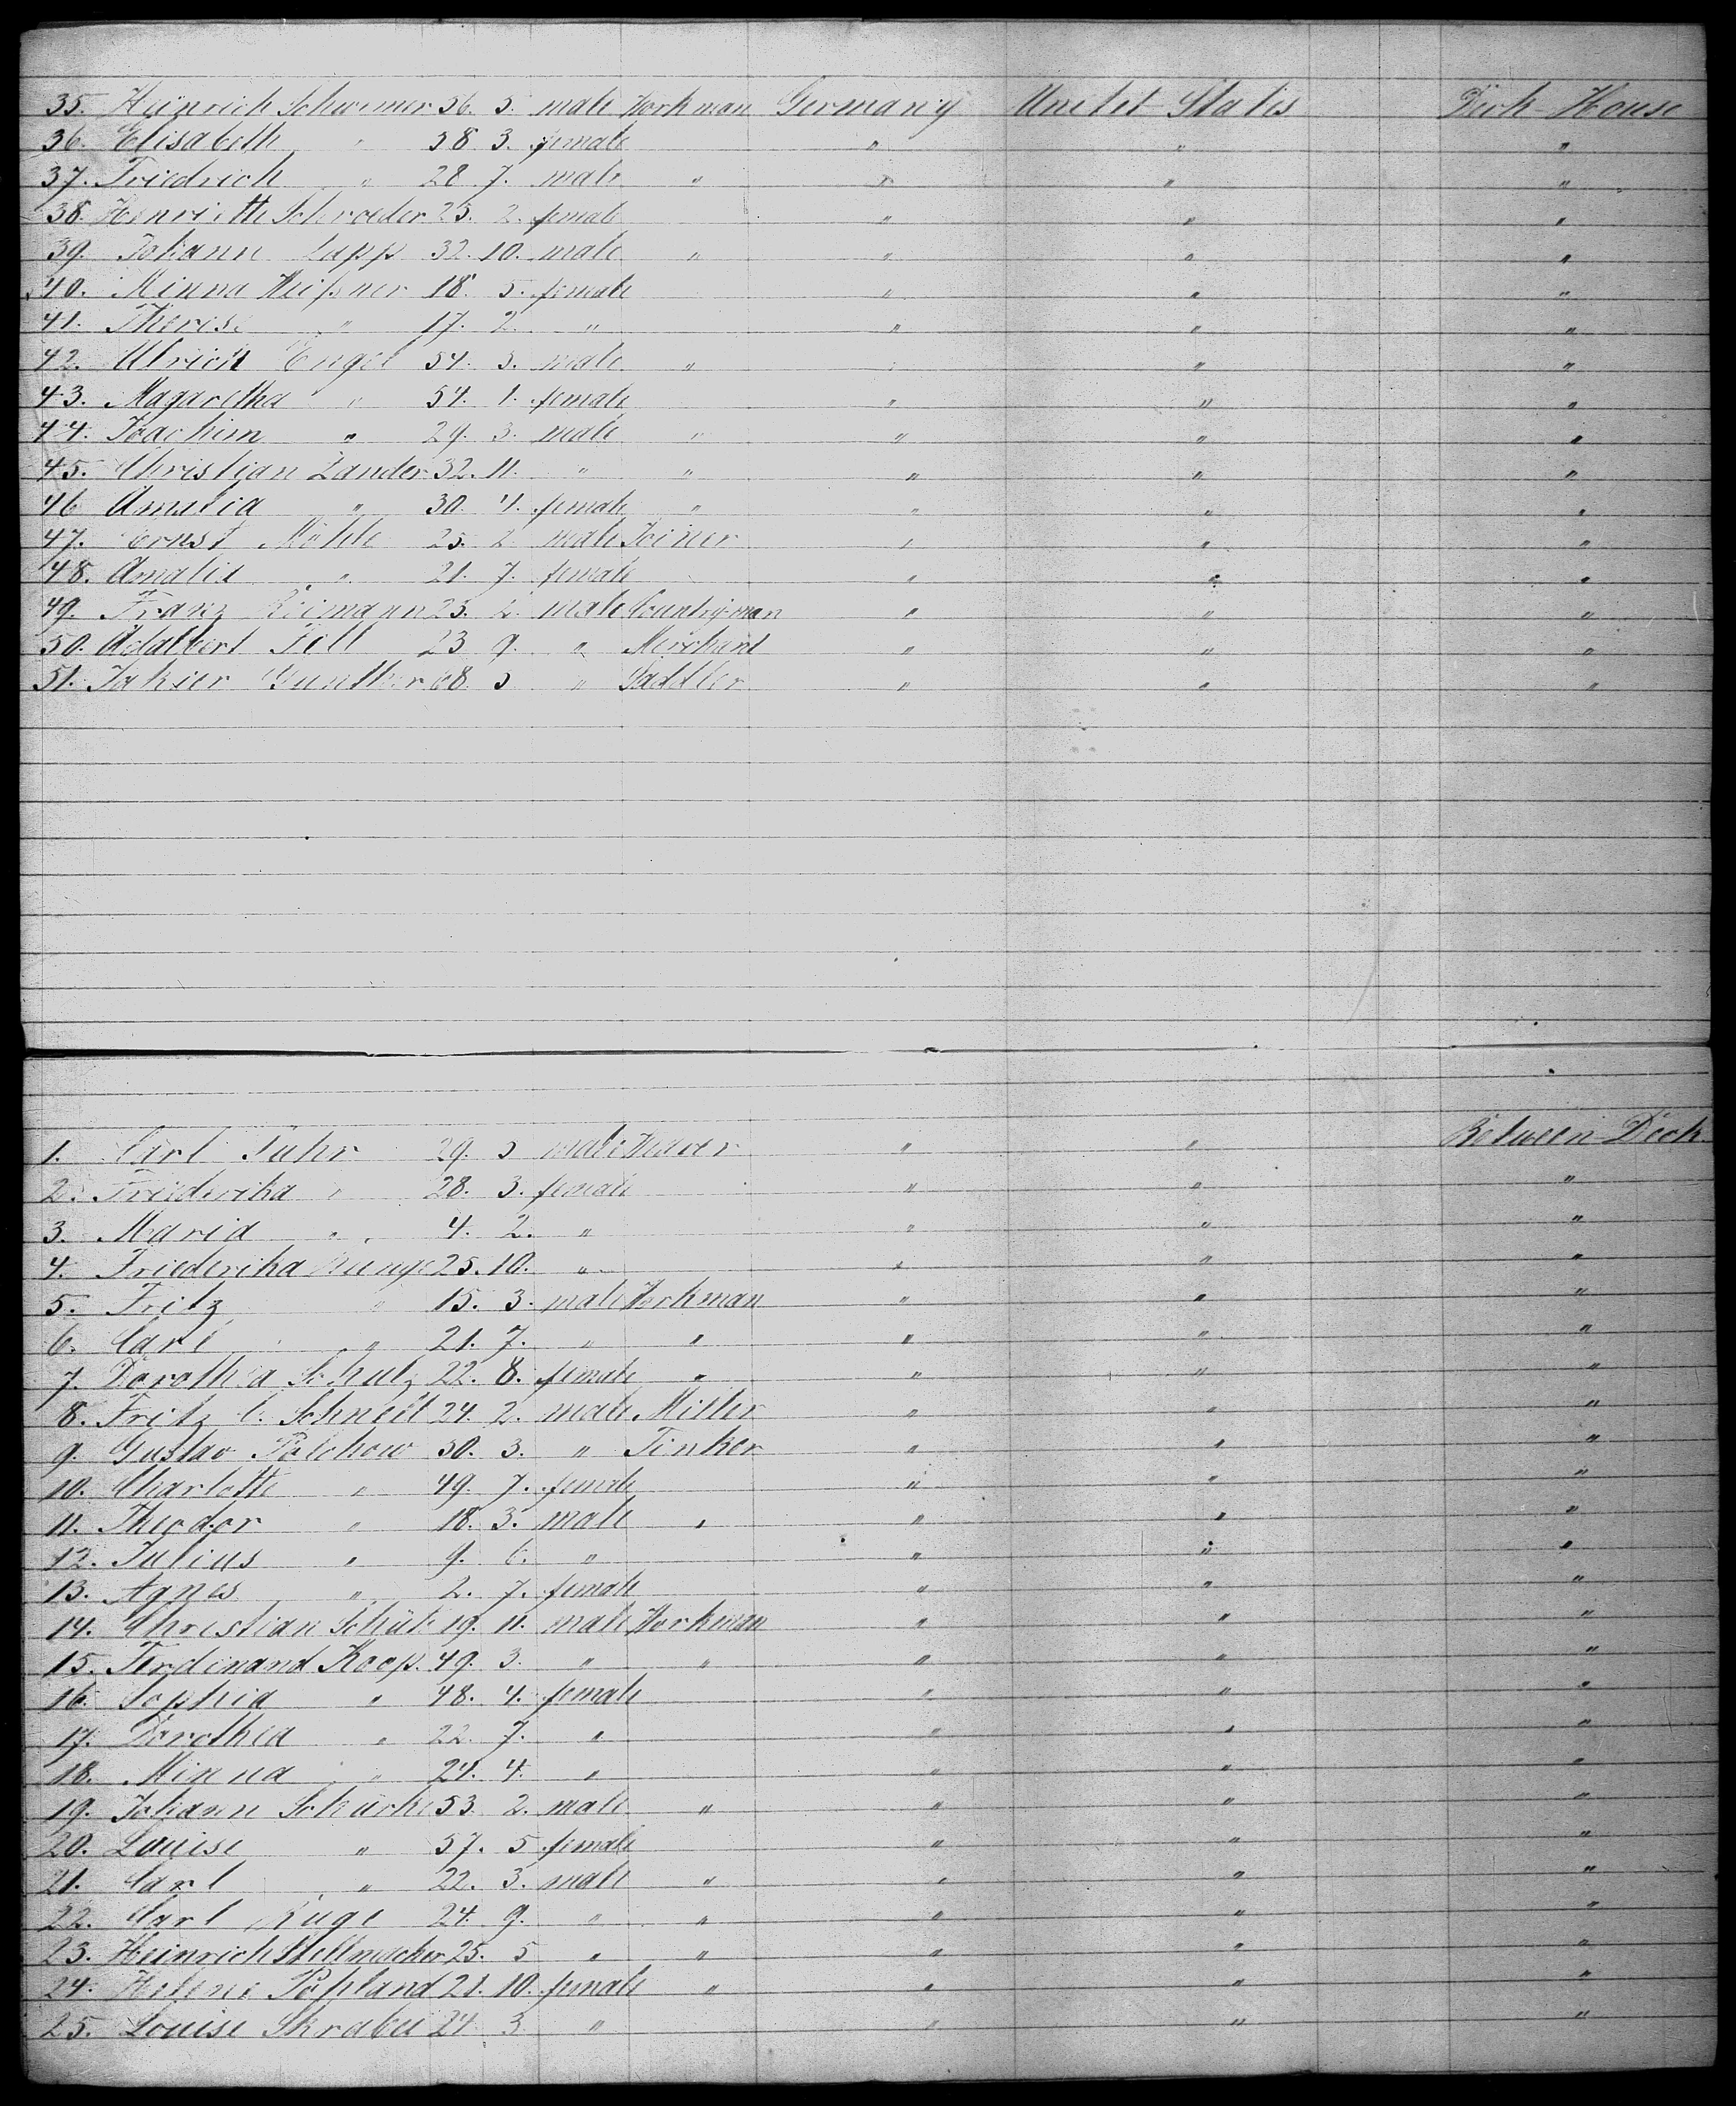 35. Heinrich Schwemer 56. 5. male Workman Germany Unitet States Deck-House
36. Elisabeth " 58 3. female " " "
37. Friedrich " 28 7. male " " " "
38. Henriette Schroeder 25. 2. female " " "
39. Johann Lapp 32. 10. male " " " "
40. Minna Meißner 18. 5. female " " "
41. Therese " 17. 2. " " " "
42. Ulrich Engel 54. 3. male " " " "
43. Magaretha " 54. 1. female " " "
44. Joachim " 29. 3. male " " " "
45. Christian Zander 32. 11. " " " " "
46 Amalia " 30. 4. female " " " "
47. Ernst Möhle 25. 2 male Joiner " " "
48. Amalia " 21. 7. female " " "
49. Franz Reimann 25. 2. male Countryman " " "
50. Adalbert Fell 23 9. " Merchant " " "
51. Gunther 68. 5 " Saddler " " "
1. Carl Fuhr 29. 5 male Weaver " " Between-Deck
2. Friederika " 28. 3. female " " "
3. Maria " 4. 2. " " " "
4. Friederika Runge 25. 10. " " " "
5. Fritz " 15. 3. male Workman " " "
6. Carl " 21. 7. " " " " "
7. Dorothea Schulz 22. 8. female " " " "
8. Fritz C. Schneil 24. 2. male Miller " " "
9. Gustav Palchow 50. 3. " Tinker " " "
10. Charlotte " 49. 7. female " " "
11. Theodor " 18. 3. male " " " "
12. Julius " 9. 6. " " " "
13. Agnes " 2. 7. female " " "
14. Christian Schüt 19. 11. male Workman " " "
15. Ferdinand Koop. 49. 3. " " " " "
16. Sophia " 48. 4. female " " "
17. Dorothea " 22. 7. " " " "
18. Minna " 24. 4. " " " "
19. Johann Schücke 53. 2. male " " " "
20. Louise " 57. 5 female " " "
21. Carl " 22. 3. male " " " "
22. Carl Ruge 24. 9. " " " " "
23. Heinrich Stellmacher 25. 5 " " " " "
24. Helene Paßland 21. 10. female " " " "
25. Louise Skrabei 24 3 " " " "